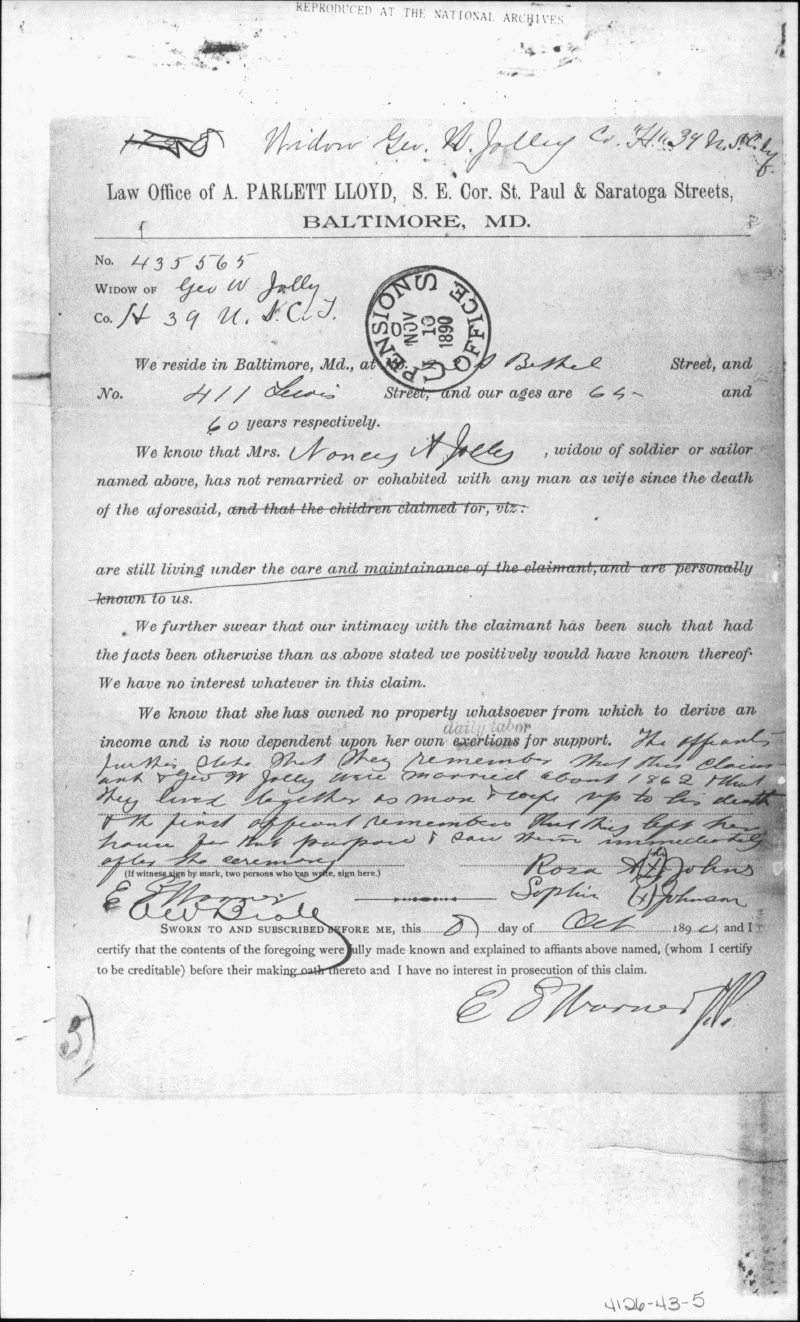 REPRODUCED AT THE NATIONAL ARCHIVES
Widow Geo. W. Jolley Co. "H" 39 U.S.C. Inf.
Law Office of A. PARLETT LLOYD, S. E. Cor. St. Paul & Saratoga Streets,
BALTIMORE, MD.
No. 435565
WIDOW OF Geo W Jolly
Co. H 39 U. S. C. T.
PENSIONS OFFICE
NOV
10
1890
We reside in Baltimore, Md., at No. S Bethel Street, and
No. 411 Lewis Street, and our ages are 65 and
60 years respectively.
We know that Mrs. Nancy A Jolley, widow of soldier or sailor
named above, has not remarried or cohabited with any man as wife since the death
of the aforesaid, and that the children claimed for, viz:
are still living under the care and maintainance of the claimant, and are personally
known to us.
We further swear that our intimacy with the claimant has been such that had
the facts been otherwise than as above stated we positively would have known thereof.
We have no interest whatever in this claim.
We know that she has owned no property whatsoever from which to derive an
daily labor
income and is now dependent upon her own exertions for support. The affiants
further state that they remember that this claim
ant & Geo W Jolly were married about 1862 & that
they lived together as man & wife up to his death
& the first affiant remembers that they left her
house for that purpose & saw them immediately
after the ceremony
(If witness sign by mark, two persons who can write, sign here.)
Rosa A (x) Johns
E E Warner
Sophia (x) Johnson
SWORN TO AND SUBSCRIBED BEFORE ME, this 8 day of Oct 1890, and I
certify that the contents of the foregoing were fully made known and explained to affiants above named, (whom I certify
to be creditable) before their making oath thereto and I have no interest in prosecution of this claim.
E E Warner J.P.
5
4126-43-5